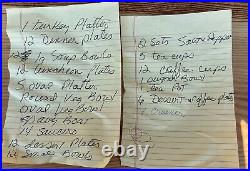 1 Turkey Platter
12 Dinner Plates
12 Soup Bowls
12 Luncheon Plates
5 Oval Platter
Round Veg Bowl
Oval Veg Bowl
Gravy Boat
14 Saucers
12 Dessert Plates
12 Small Bowls
2 Sets Salt Pepper
5 tea cups
12 Coffee Cups
1 Sugar Bowl
Tea Pot
6 Dessert Plates
1 Creamer